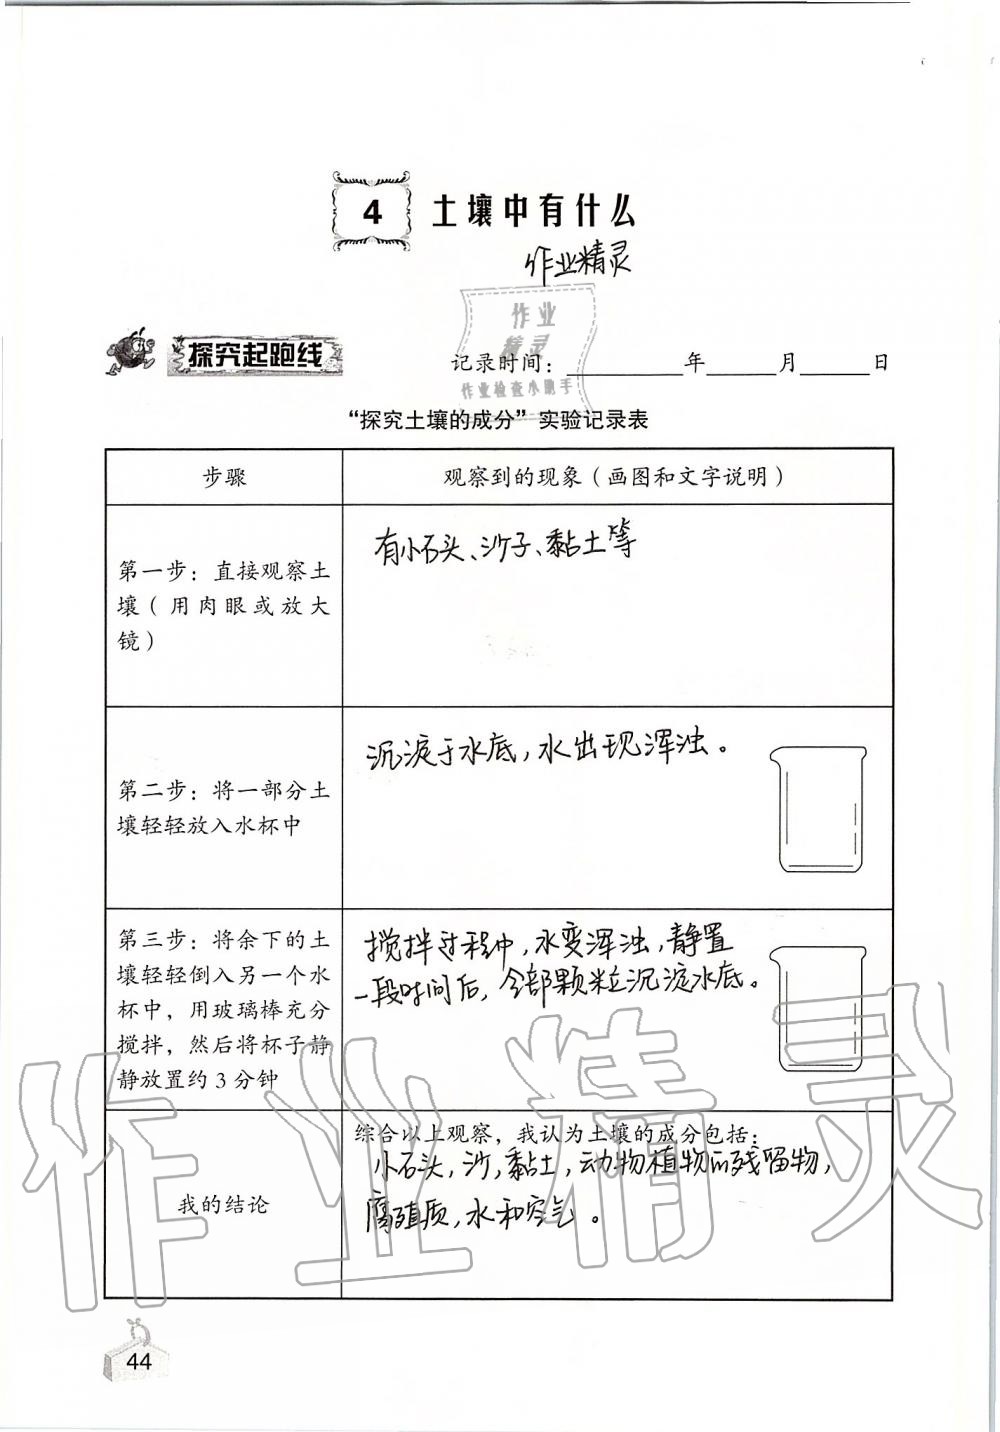 4 土壤中有什么
作业精灵
作业
精灵
作业检查小助手
探究起跑线
记录时间：________年_____月_____日
“探究土壤的成分”实验记录表
步骤
观察到的现象（画图和文字说明）
第一步：直接观察土
壤（用肉眼或放大
镜）
有小石头、沙子、黏土等
第二步：将一部分土
壤轻轻放入水杯中
沉淀于水底，水出现浑浊。
第三步：将余下的土
壤轻轻倒入另一个水
杯中，用玻璃棒充分
搅拌，然后将杯子静
静放置约3分钟
搅拌过程中，水变浑浊，静置
一段时间后，全部颗粒沉淀水底。
我的结论
综合以上观察，我认为土壤的成分包括：
小石头，沙，黏土，动物植物的残留物，
腐殖质，水和空气。
作业精灵
44